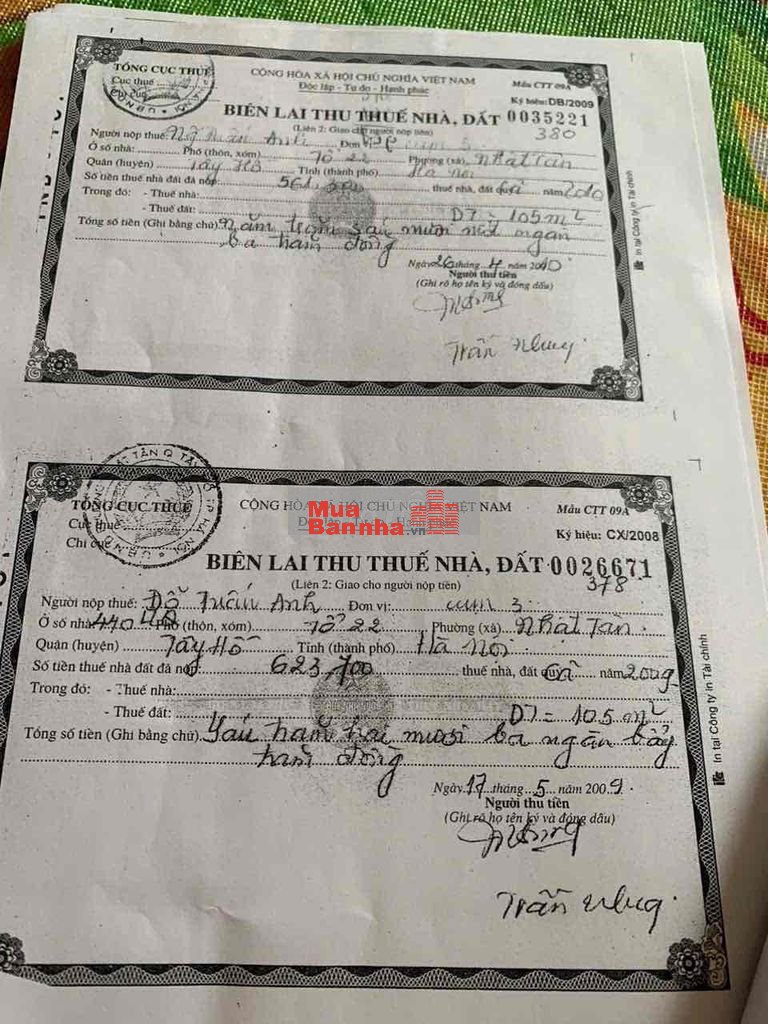 TỔNG CỤC THUẾ
Cục thuế
CỘNG HÒA XÃ HỘI CHỦ NGHĨA VIỆT NAM
Độc lập - Tự do - Hạnh phúc
Mẫu CTT 09A
Ký hiệu: DB/2009
BIÊN LAI THU THUẾ NHÀ, ĐẤT 0035221
(Liên 2: Giao cho người nộp tiền) 380
Người nộp thuế: Tuấn Anh Đơn cụm 3
Ở số nhà: Phố (thôn, xóm) Tổ 22 Phường (xã) Nhật Tân
Quận (huyện) Tây Hồ Tỉnh (thành phố) Hà Nội
Số tiền thuế nhà đất đã nộp 561,300 thuế nhà, đất quý cả năm 2010
Trong đó: - Thuế nhà:
- Thuế đất: DT = 105 m²
Tổng số tiền (Ghi bằng chữ) Năm trăm sáu mươi mốt ngàn
ba trăm đồng
Ngày 26 tháng 4 năm 2010
Người thu tiền
(Ghi rõ họ tên ký và đóng dấu)
Trần Nhung
In tại Công ty In Tài chính
TỔNG CỤC THUẾ
Cục thuế
Chi cục
CỘNG HÒA XÃ HỘI CHỦ NGHĨA VIỆT NAM
MuaBannha.vn
Mẫu CTT 09A
Ký hiệu: CX/2008
BIÊN LAI THU THUẾ NHÀ, ĐẤT 0026671
(Liên 2: Giao cho người nộp tiền) 378
Người nộp thuế: Đỗ Tuấn Anh Đơn vị: cụm 3
Ở số nhà 440 Phố (thôn, xóm) Tổ 22 Phường (xã) Nhật Tân
Quận (huyện) Tây Hồ Tỉnh (thành phố) Hà Nội
Số tiền thuế nhà đất đã nộp 623,700 thuế nhà, đất quý cả năm 2009
Trong đó: - Thuế nhà:
- Thuế đất: DT = 105 m²
Tổng số tiền (Ghi bằng chữ) Sáu trăm hai mươi ba ngàn bảy
trăm đồng
Ngày 17 tháng 5 năm 2009
Người thu tiền
(Ghi rõ họ tên ký và đóng dấu)
Trần Nhung
In tại Công ty In Tài chính